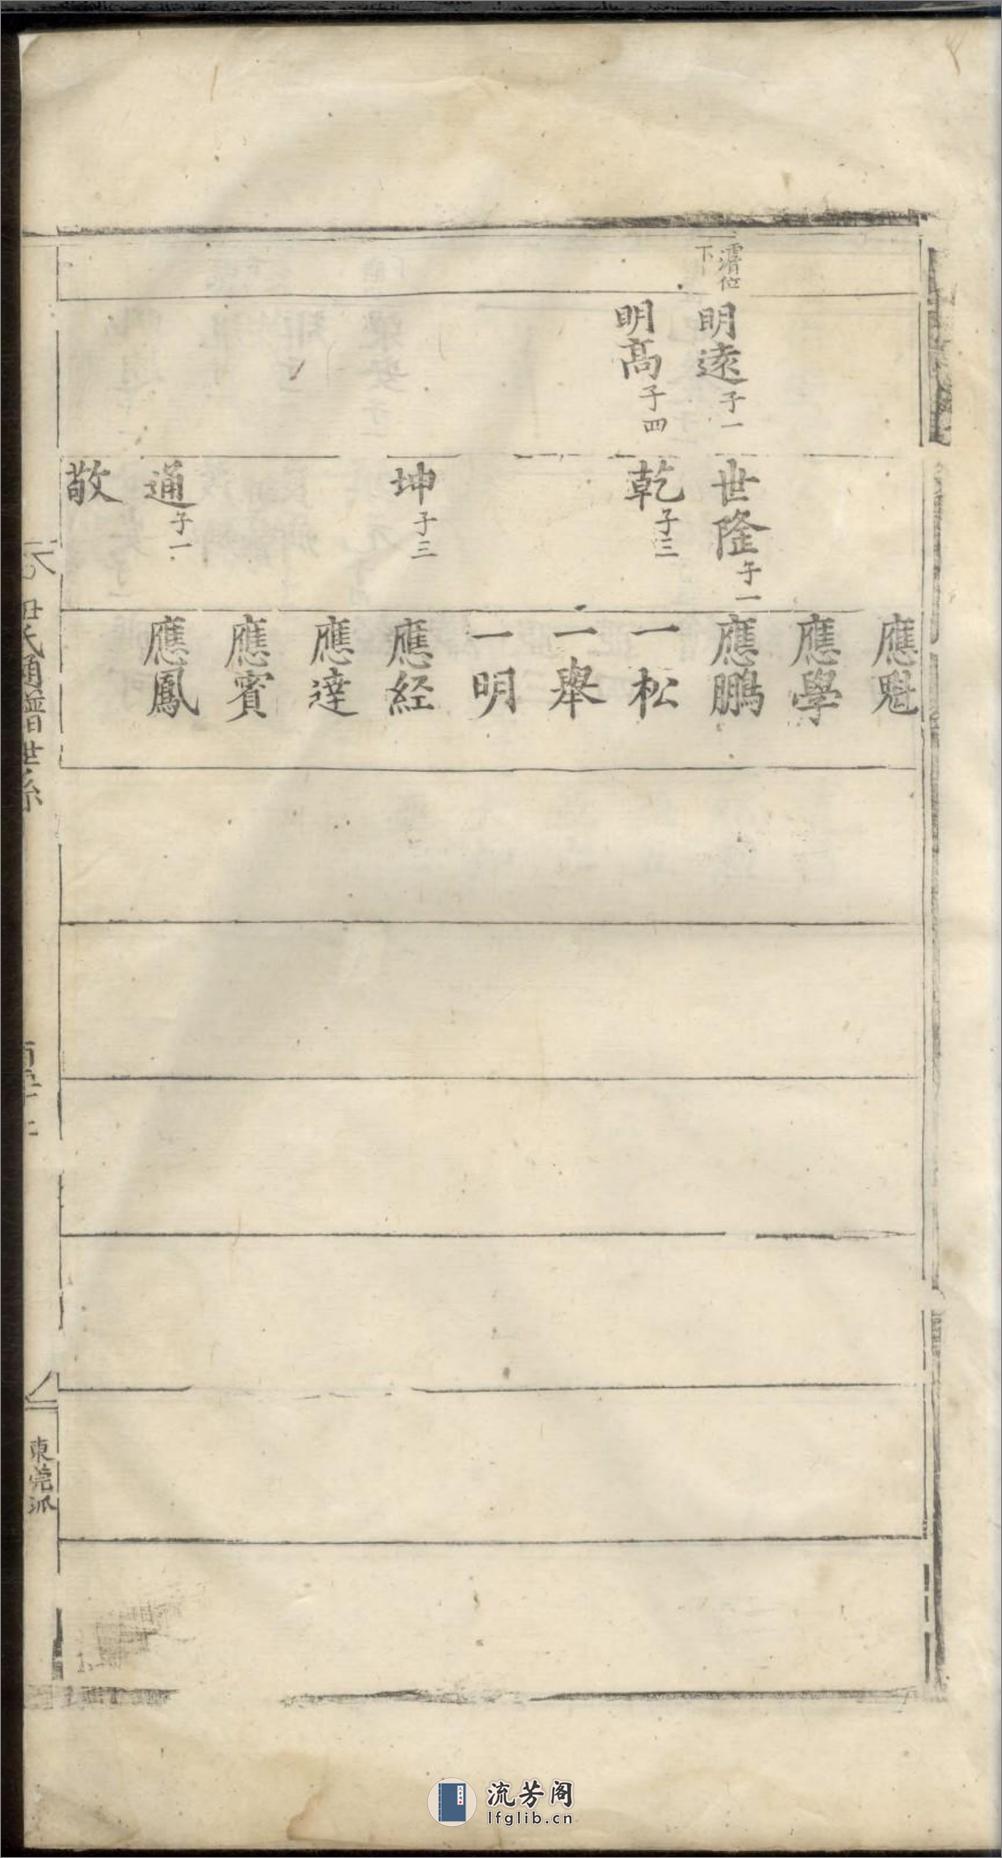 應魁
應學
位下
明遠子一
世隆子一
應鵬
明高子四
乾子三
一松
一舉
一明
坤子三
應経
應達
應賓
通子一
應鳳
敬
氏通譜世系
東莞派
流芳阁
lfglib.cn